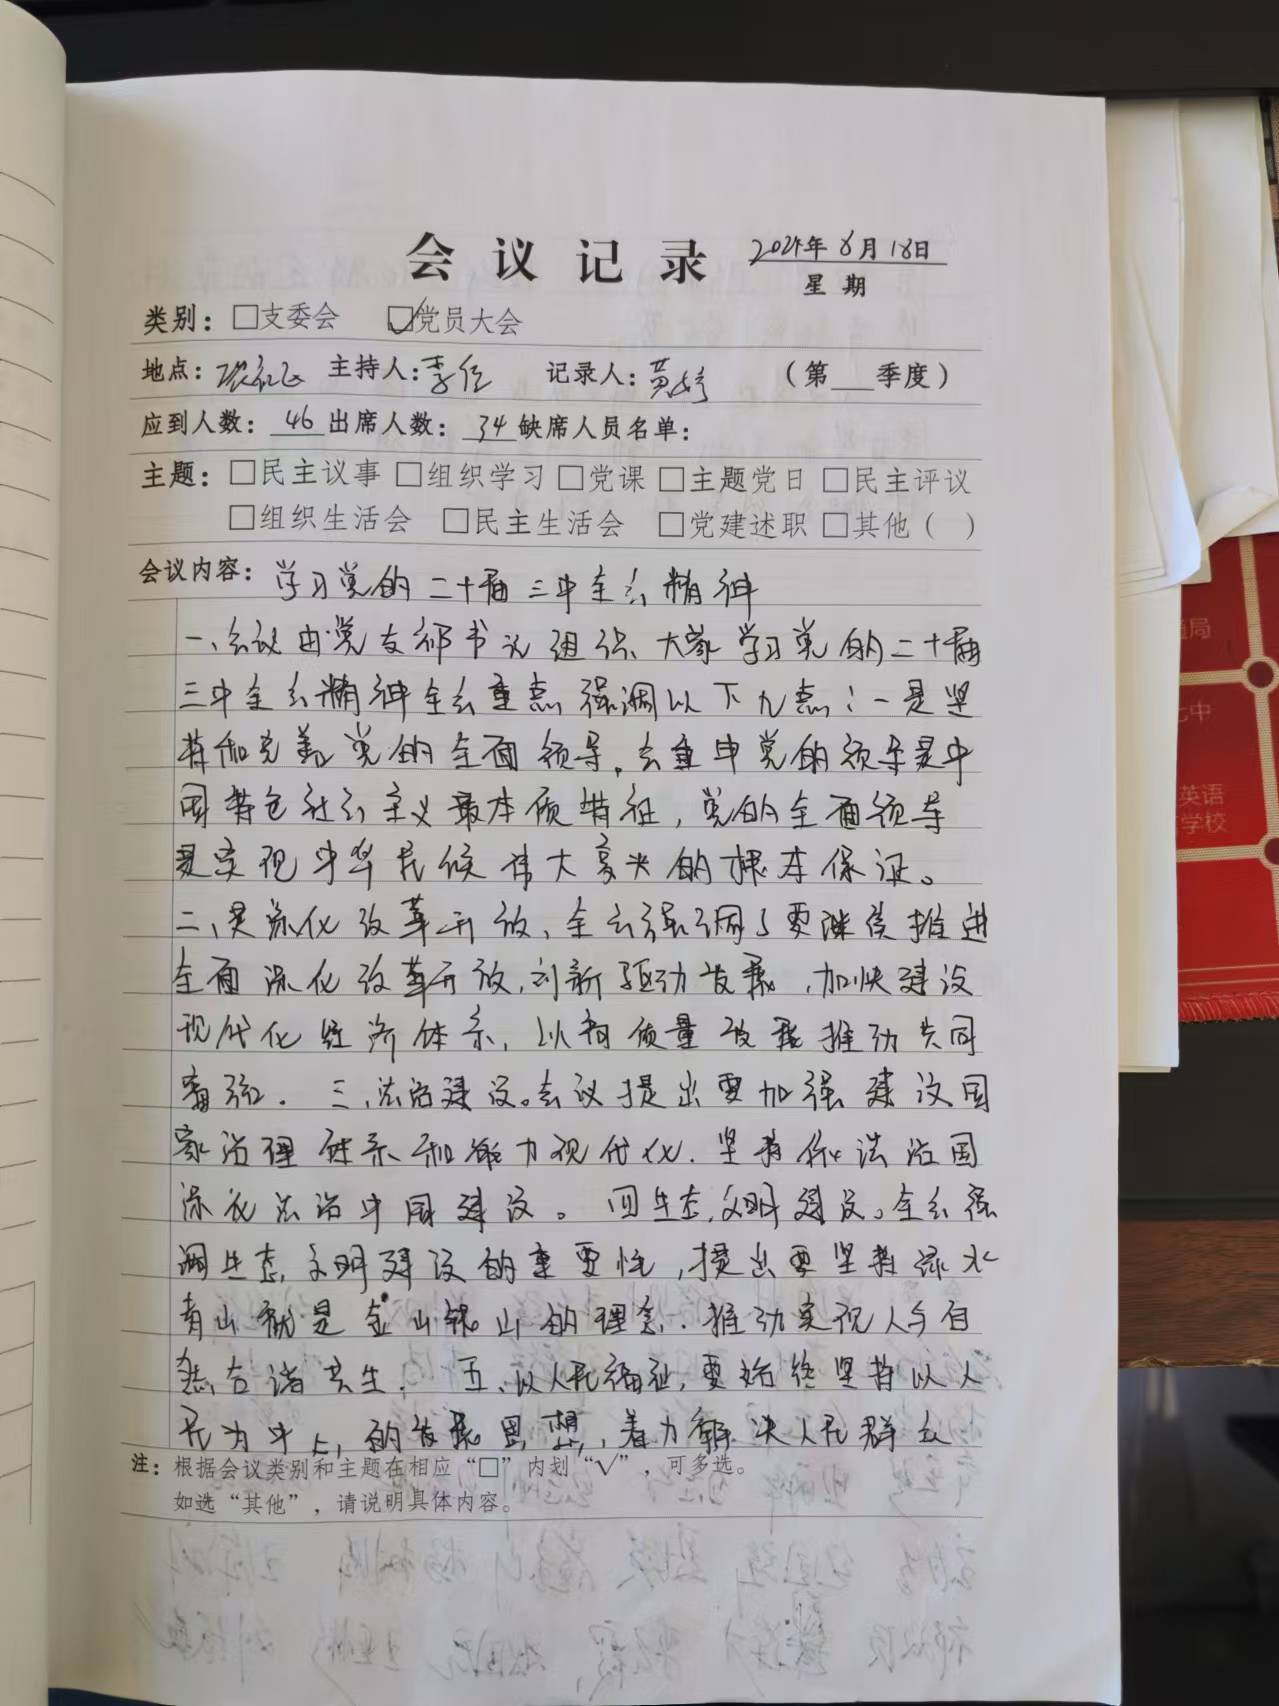 会议记录 2024年8月18日
星期
类别：□支委会 ☑党员大会
地点： 主持人：李任 记录人：黄婷 （第 季度）
应到人数：46 出席人数：34 缺席人员名单：
主题：□民主议事 □组织学习 □党课 □主题党日 □民主评议
□组织生活会 □民主生活会 □党建述职 □其他（ ）
会议内容：学习党的二十届三中全会精神
一、会议由党支部书记组织大家学习党的二十届
三中全会精神全会重点强调以下九点：一是坚
持和完善党的全面领导。会重申党的领导是中
国特色社会主义最本质特征，党的全面领导
是实现中华民候伟大复兴的根本保证。
二、是深化改革开放、全会强调了要继续推进
全面深化改革开放，创新驱动发展，加快建设
现代化经济体系，以高质量发展推动共同
富强．三、法治建设。会议提出要加强建设国
家治理体系和能力现代化．坚持依法治国
深化法治中国建设。四生态文明建设。全会强
调生态文明建设的重要性，提出要坚持绿水
青山就是金山银山的理念．推动实现人与自
然合谐共生．五、以人民福祉，要始终坚持以人
民为中心的发展思想，着力解决人民群众
注：根据会议类别和主题在相应“□”内划“√”，可多选。
如选“其他”，请说明具体内容。
局
七中
英语
学校